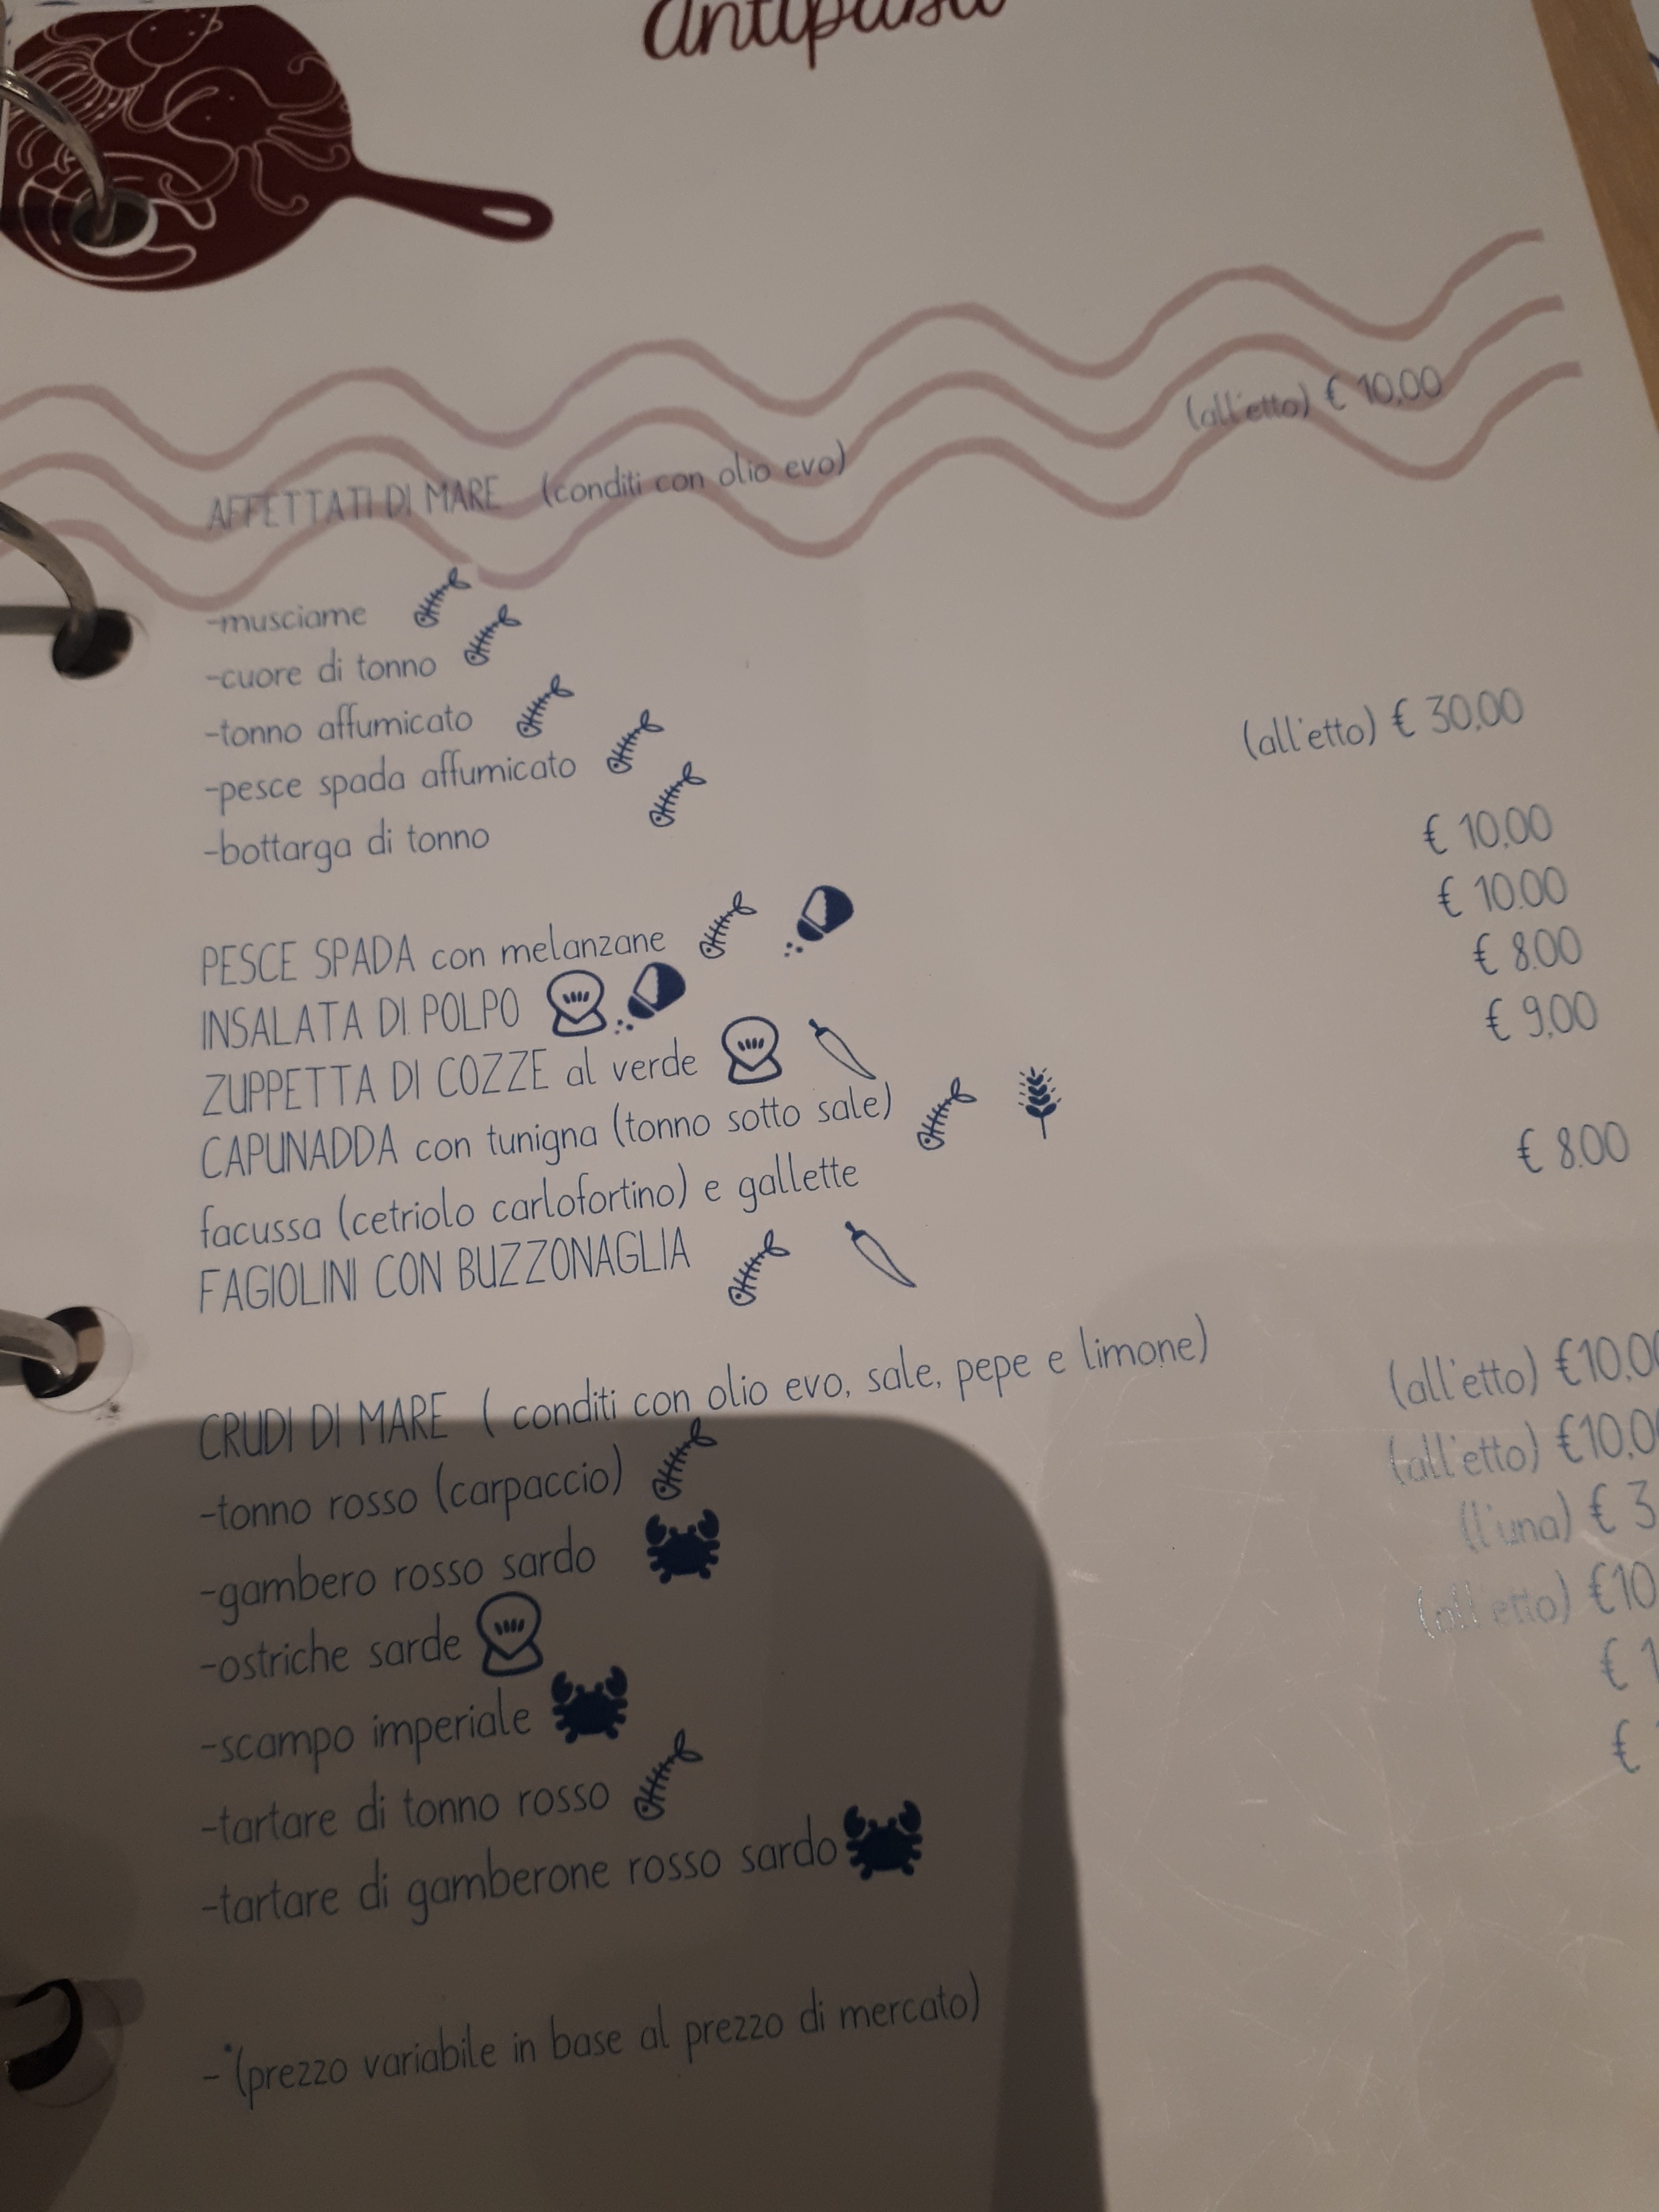 antipasti
AFFETTATI DI MARE (conditi con olio evo) (all'etto) € 10,00
-musciame
-cuore di tonno
-tonno affumicato
-pesce spada affumicato
-bottarga di tonno (all'etto) € 30,00
PESCE SPADA con melanzane € 10,00
INSALATA DI POLPO € 10.00
ZUPPETTA DI COZZE al verde € 8.00
CAPUNADDA con tunigna (tonno sotto sale) € 9,00
facussa (cetriolo carlofortino) e gallette
FAGIOLINI CON BUZZONAGLIA € 8.00
CRUDI DI MARE ( conditi con olio evo, sale, pepe e limone)
-tonno rosso (carpaccio) (all'etto) €10,0
-gambero rosso sardo (all'etto) €10,0
-ostriche sarde (l'una) € 3
-scampo imperiale (all'etto) €10
-tartare di tonno rosso € 1
-tartare di gamberone rosso sardo €
-*(prezzo variabile in base al prezzo di mercato)